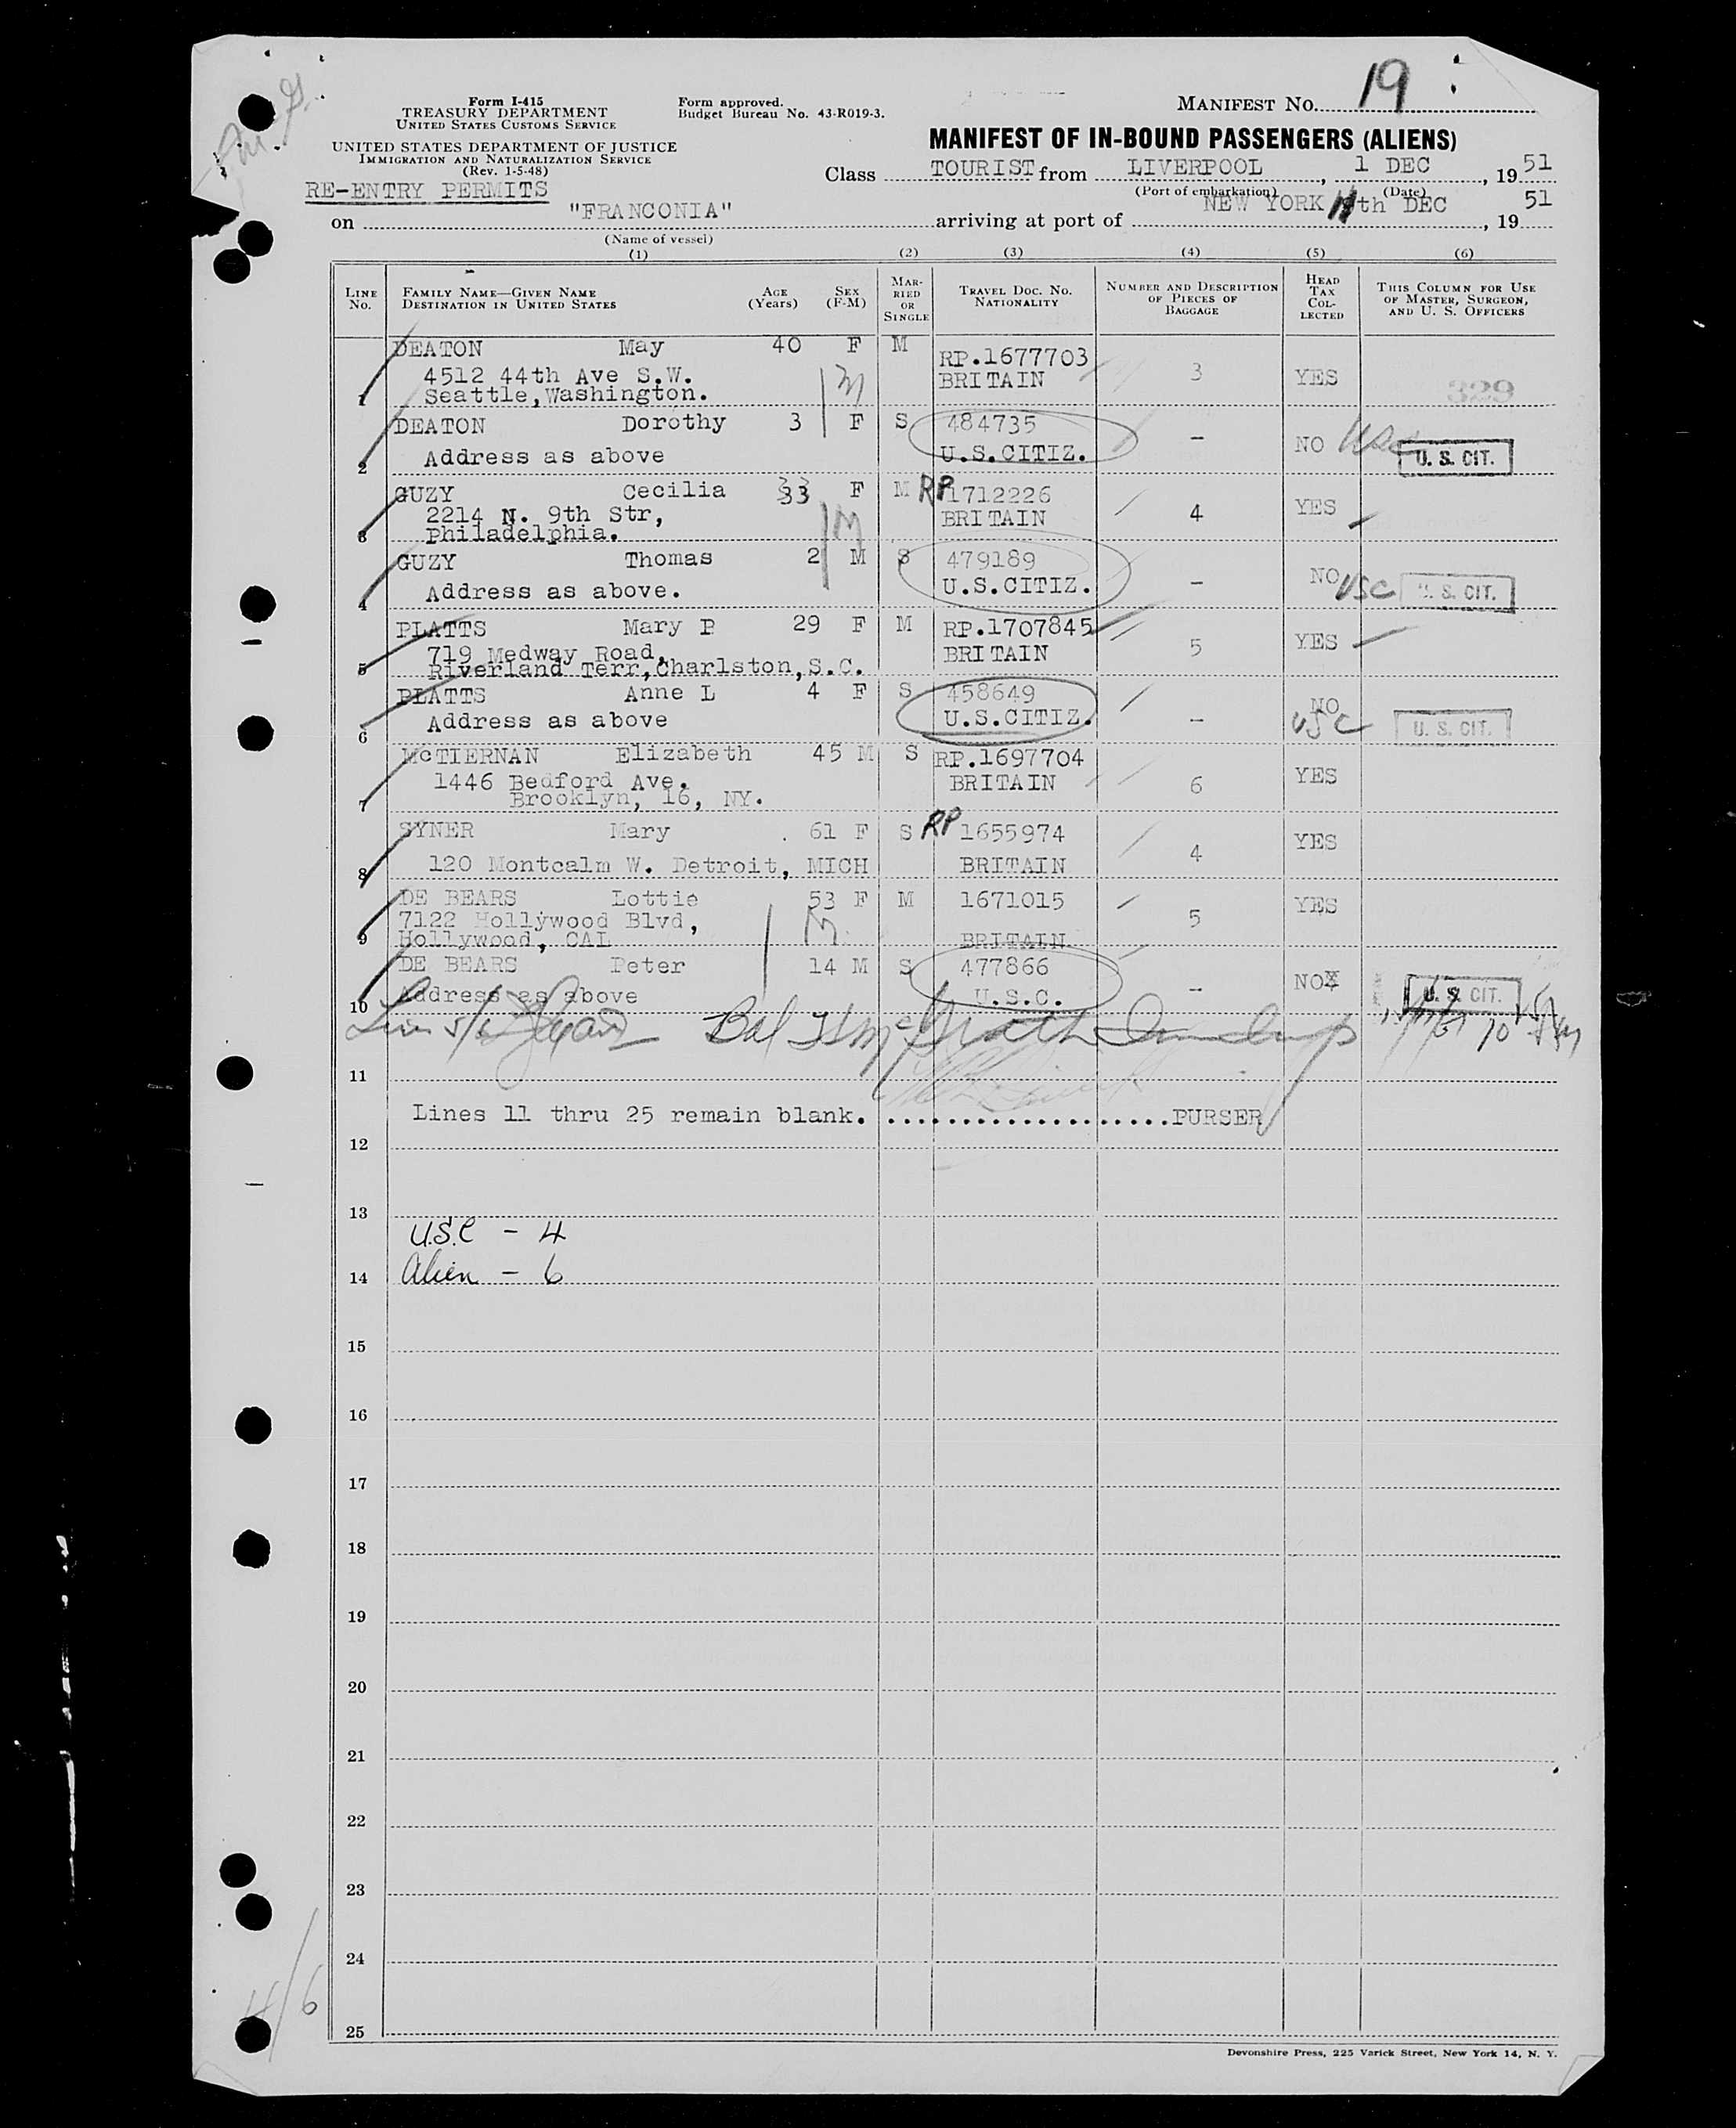 Form I-415
TREASURY DEPARTMENT
UNITED STATES CUSTOMS SERVICE
UNITED STATES DEPARTMENT OF JUSTICE
IMMIGRATION AND NATURALIZATION SERVICE
(Rev. 1-5-48)
RE-ENTRY PERMITS
Form approved.
Budget Bureau No. 43-R019-3.
MANIFEST NO. 19
MANIFEST OF IN-BOUND PASSENGERS (ALIENS)
Class TOURIST from LIVERPOOL, 1 DEC, 19 51
(Port of embarkation) (Date)
on "FRANCONIA" arriving at port of NEW YORK th DEC, 19 51
(Name of vessel)
(1) (2) (3) (4) (5) (6)
LINE NO. FAMILY NAME—GIVEN NAME DESTINATION IN UNITED STATES AGE (Years) SEX (F-M) MARRIED OR SINGLE TRAVEL DOC. NO. NATIONALITY NUMBER AND DESCRIPTION OF PIECES OF BAGGAGE HEAD TAX COLLECTED THIS COLUMN FOR USE OF MASTER, SURGEON, AND U. S. OFFICERS
DEATON May 40 F M RP.1677703
4512 44th Ave S.W. BRITAIN 3 YES 329
1 Seattle,Washington.
DEATON Dorothy 3 F S 484735
2 Address as above U.S.CITIZ. - NO USC U. S. CIT.
GUZY Cecilia 33 F M RP 1712226
2214 N. 9th Str, BRITAIN 4 YES
3 Philadelphia.
GUZY Thomas 2 M S 479189
4 Address as above. U.S.CITIZ. - NO USC U. S. CIT.
PLATTS Mary P 29 F M RP.1707845
719 Medway Road, BRITAIN 5 YES
5 Riverland Terr,Charlston,S.C.
PLATTS Anne L 4 F S 458649
6 Address as above U.S.CITIZ. - NO USC U. S. CIT.
McTIERNAN Elizabeth 45 M S RP.1697704
1446 Bedford Ave. BRITAIN 6 YES
7 Brooklyn, 16, NY.
SYNER Mary 61 F S RP 1655974
8 120 Montcalm W. Detroit, MICH BRITAIN 4 YES
DE BEARS Lottie 53 F M 1671015
7122 Hollywood Blvd, 5 YES
9 Hollywood, CAL BRITAIN
DE BEARS Peter 14 M S 477866
10 Address as above U.S.C. - NO U. S. CIT.
11
Lines 11 thru 25 remain blank. ...................PURSER
12
13
U.S.C - 4
14 Alien - 6
15
16
17
18
19
20
21
22
23
24
25
4/6
Devonshire Press, 225 Varick Street, New York 14, N. Y.